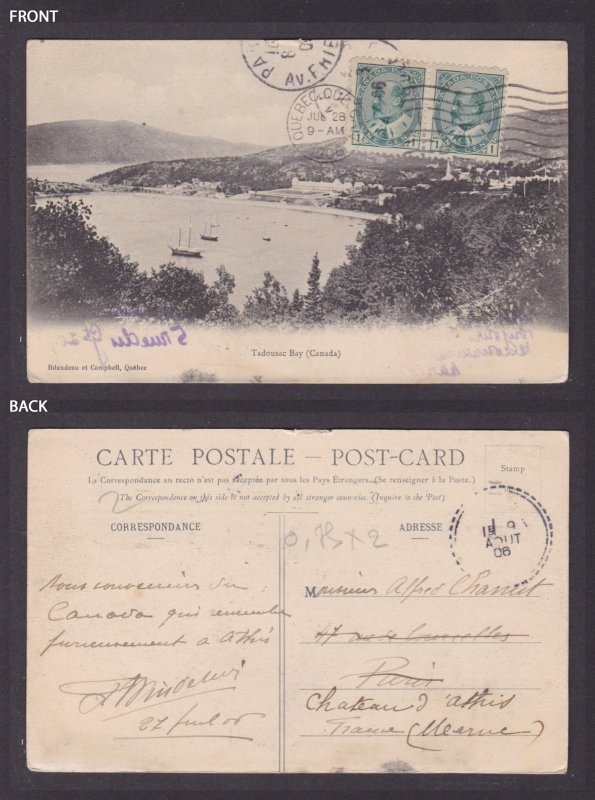 FRONT
PA
Av. FHIE
QUEBEC, QUE
JUL 28
9-AM
1906
CANADA POSTAGE CANADA POSTAGE
1 1 1
Tadousac Bay (Canada)
Bilaudeau et Campbell, Québec
BACK
CARTE POSTALE — POST-CARD
La Correspondance au recto n'est pas acceptée par tous les Pays Etrangers.—(Se renseigner à la Poste.)
The Correspondence on this side is not accepted by all stranger countries. (Inquire to the Post)
Stamp
2
CORRESPONDANCE
ADRESSE
9
AOUT
06
0,75 x 2
souvenirs du
Canada qui
furieusement à Athis
27 Juil 06
Monsieur Alfred
47 rue de
Paris
Chateau d'Athis
France (Marne)